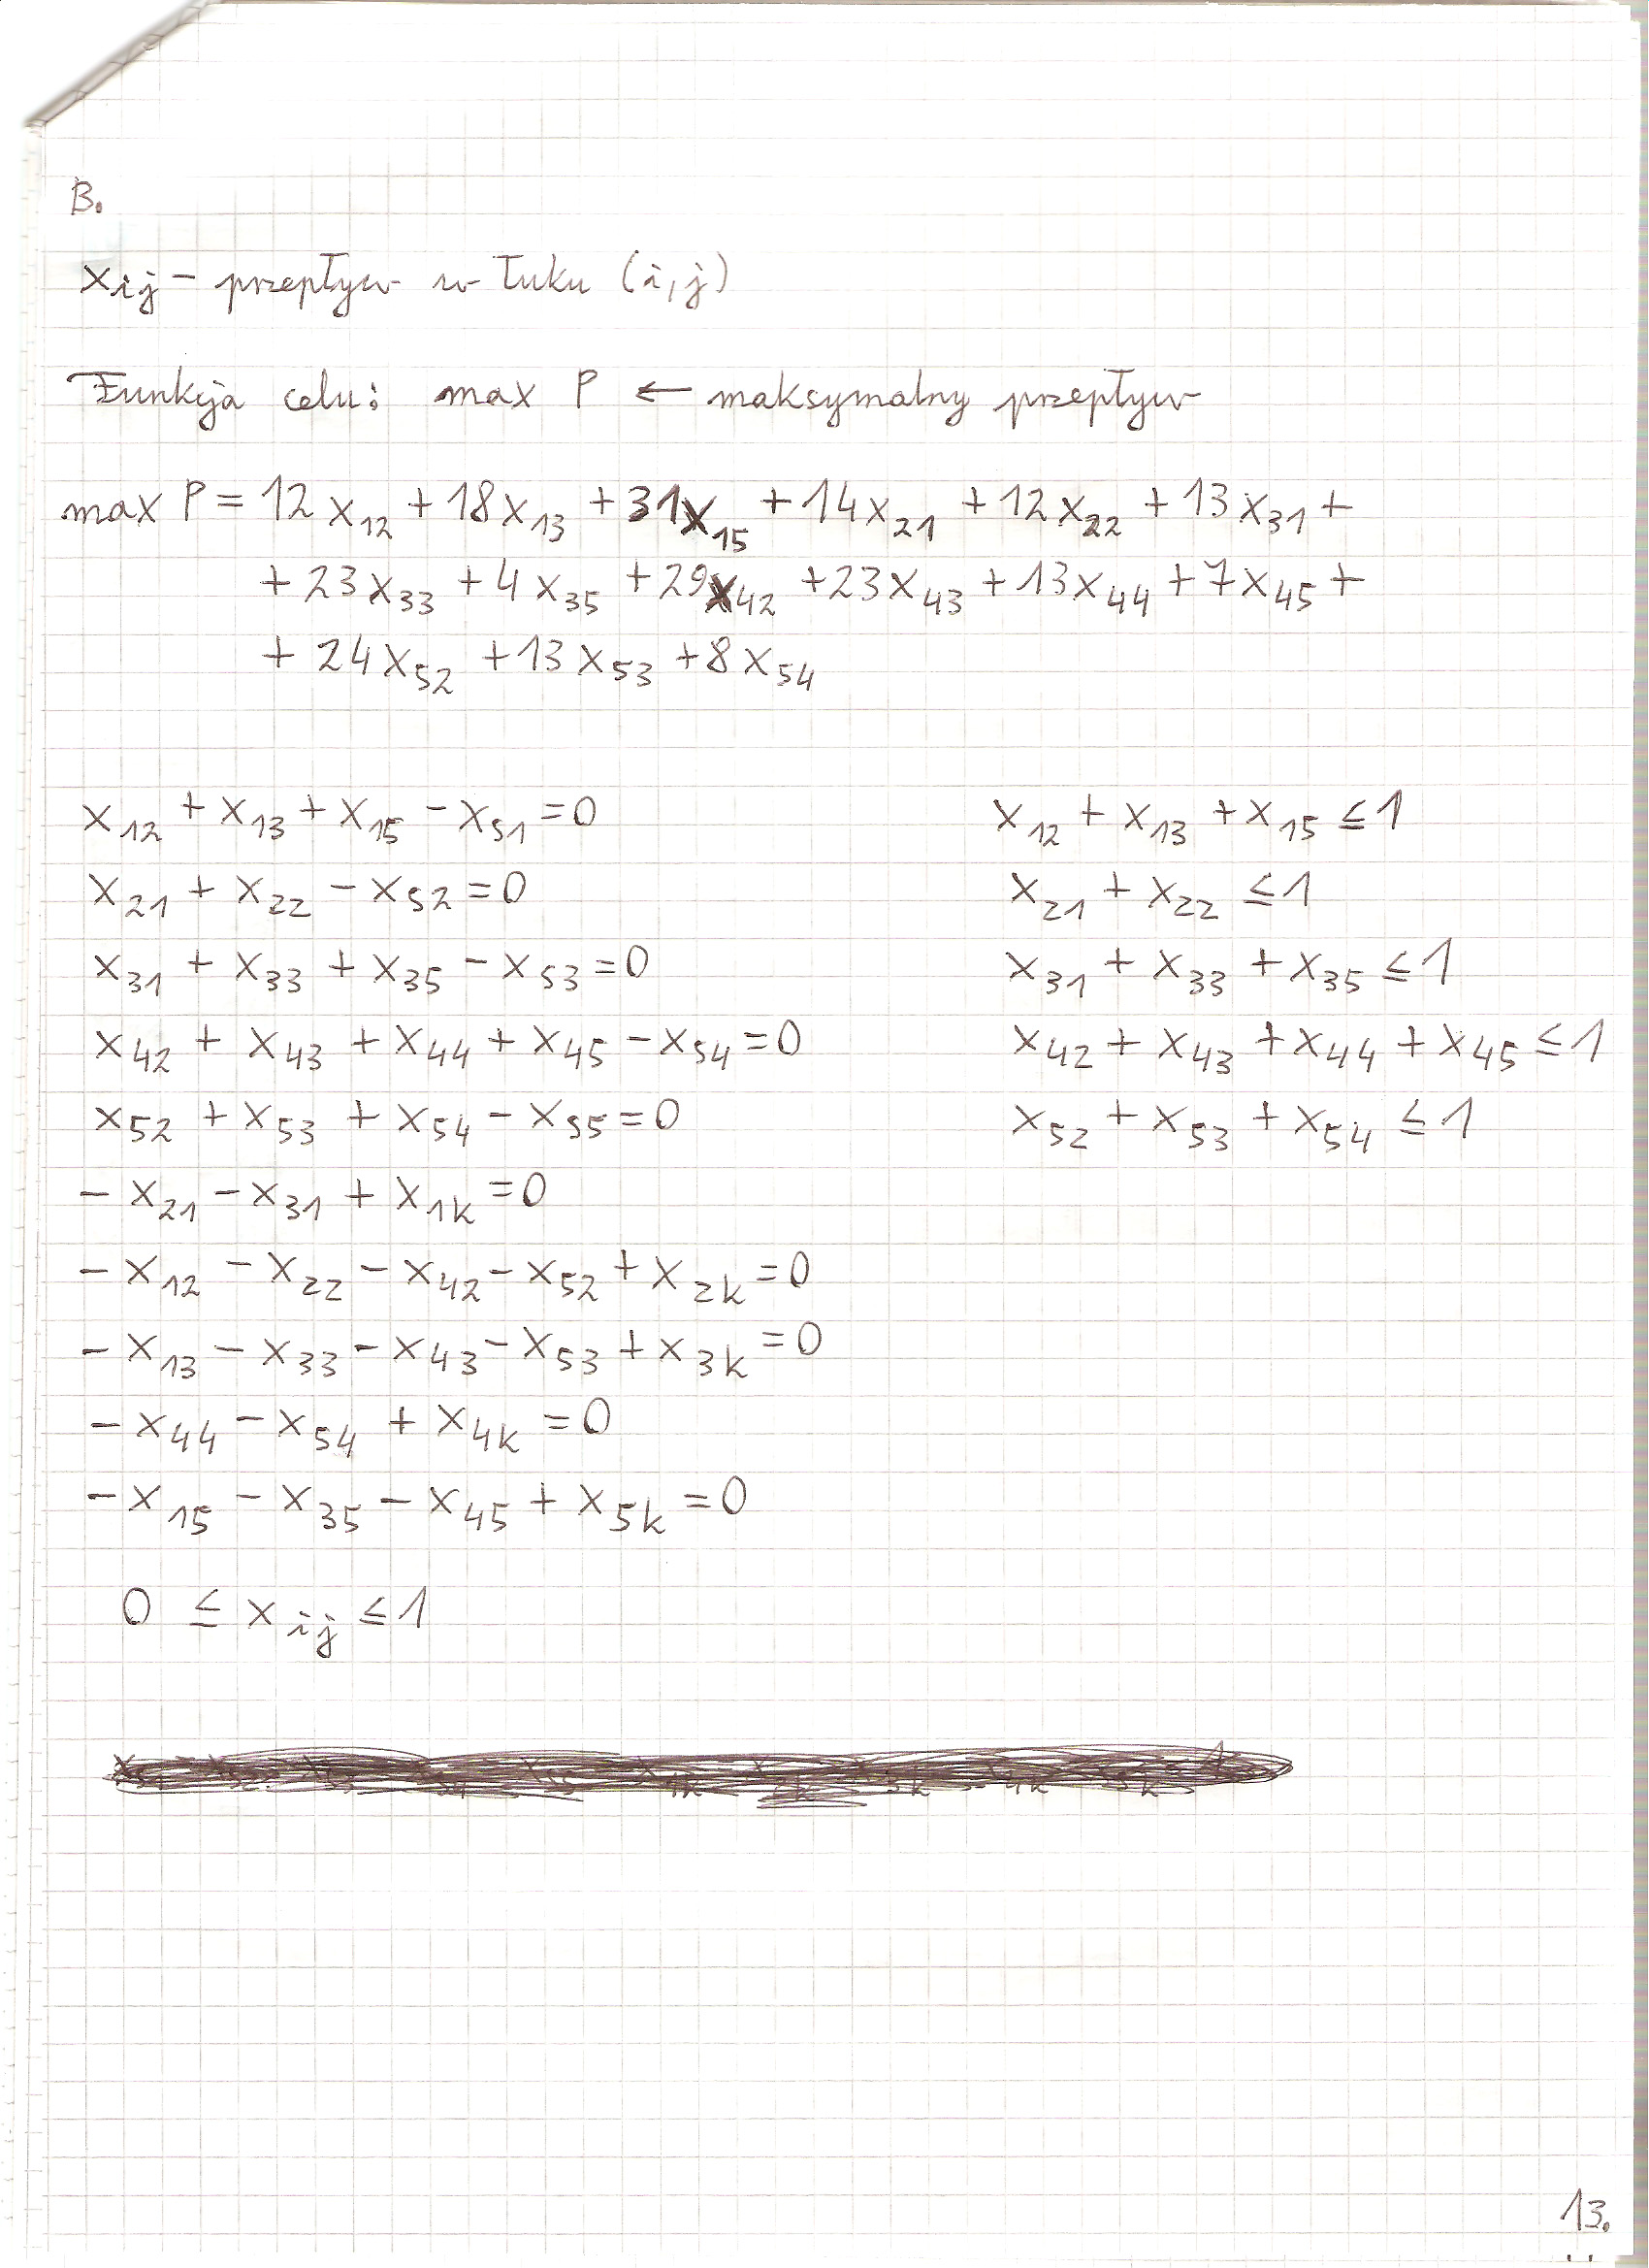 B.
x_ij – przepływ w łuku (i,j)
Funkcja celu: max P ← maksymalny przepływ
max P = 12x_12 + 18x_13 + 31x_15 + 14x_21 + 12x_22 + 13x_31 +
+ 23x_33 + 4x_35 + 29x_42 + 23x_43 + 13x_44 + 7x_45 +
+ 24x_52 + 13x_53 + 8x_54
x_12 + x_13 + x_15 - x_S1 = 0
x_21 + x_22 - x_S2 = 0
x_31 + x_33 + x_35 - x_S3 = 0
x_42 + x_43 + x_44 + x_45 - x_S4 = 0
x_52 + x_53 + x_54 - x_S5 = 0
- x_21 - x_31 + x_1k = 0
- x_12 - x_22 - x_42 - x_52 + x_2k = 0
- x_13 - x_33 - x_43 - x_53 + x_3k = 0
- x_44 - x_54 + x_4k = 0
- x_15 - x_35 - x_45 + x_5k = 0
0 ≤ x_ij ≤ 1
x_12 + x_13 + x_15 ≤ 1
x_21 + x_22 ≤ 1
x_31 + x_33 + x_35 ≤ 1
x_42 + x_43 + x_44 + x_45 ≤ 1
x_52 + x_53 + x_54 ≤ 1
13.